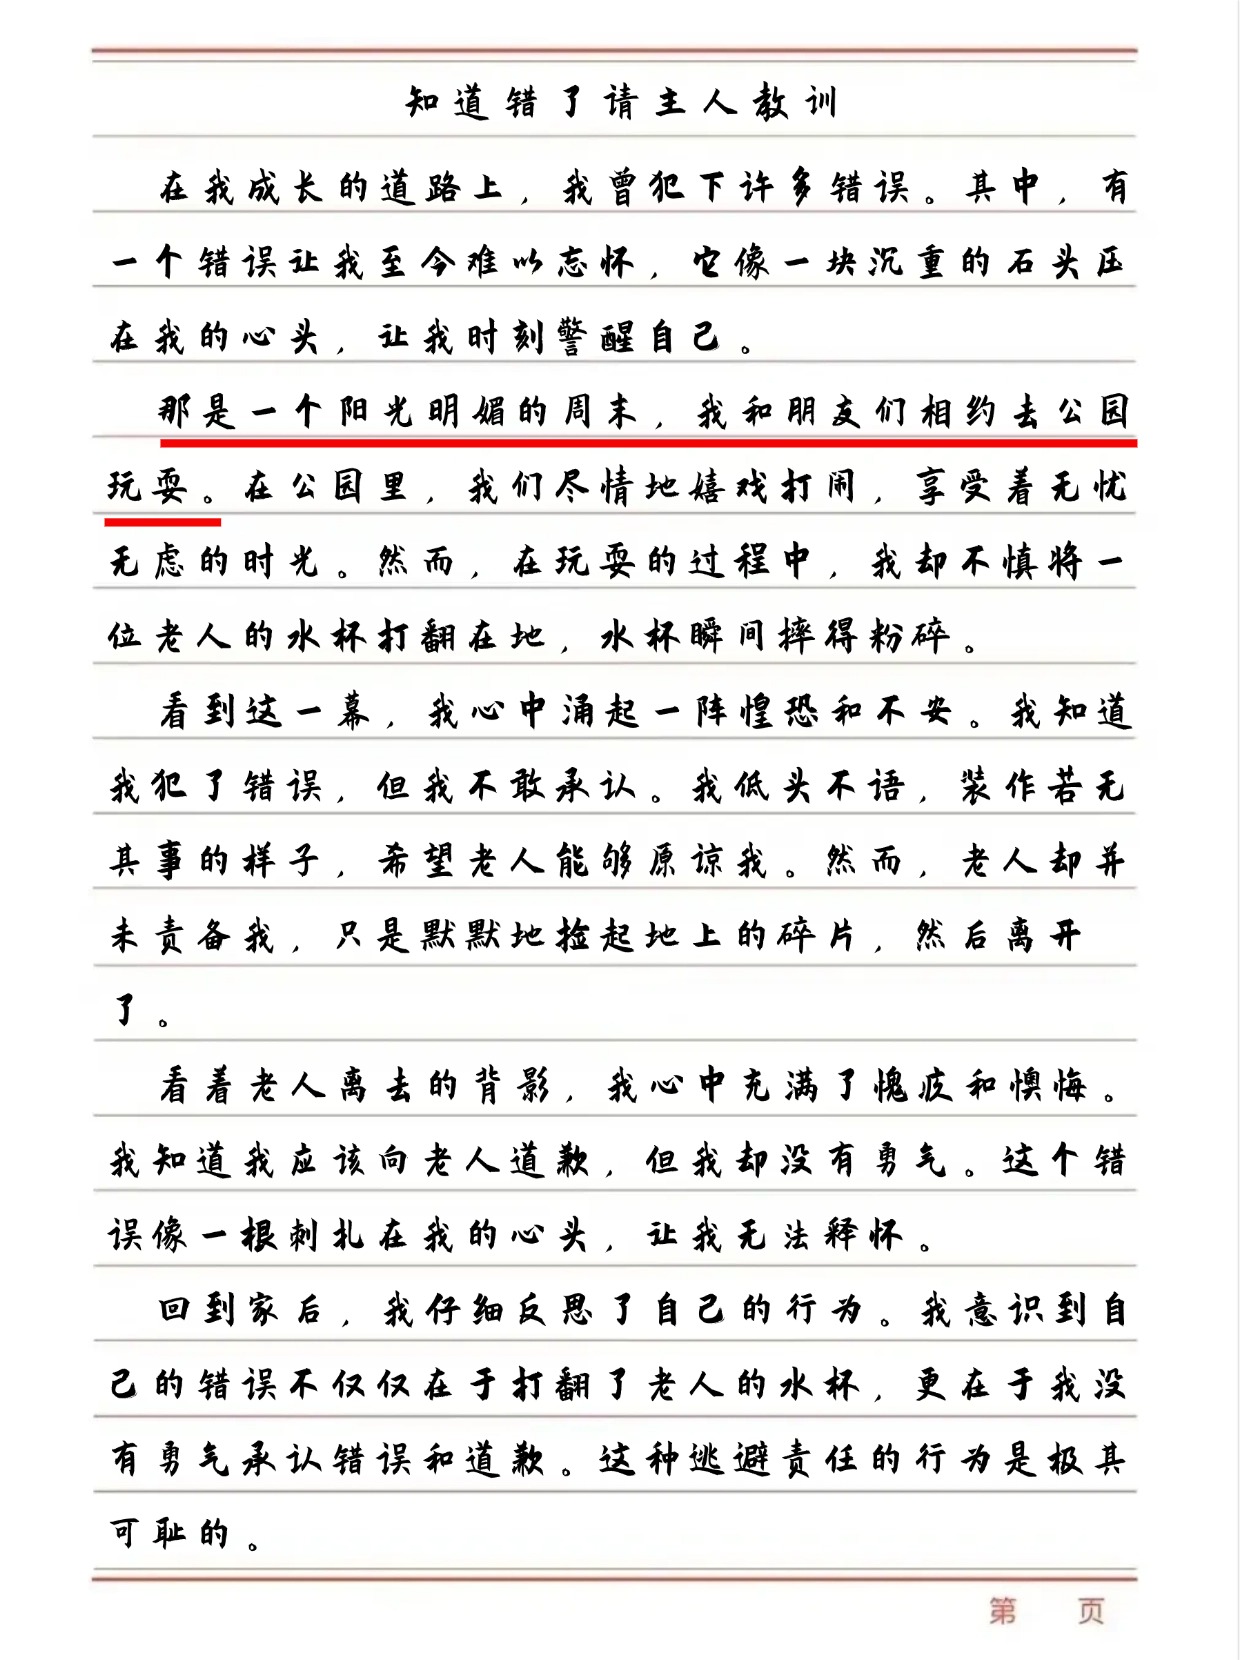 知道错了请主人教训
在我成长的道路上，我曾犯下许多错误。其中，有
一个错误让我至今难以忘怀，它像一块沉重的石头压
在我的心头，让我时刻警醒自己。
那是一个阳光明媚的周末，我和朋友们相约去公园
玩耍。在公园里，我们尽情地嬉戏打闹，享受着无忧
无虑的时光。然而，在玩耍的过程中，我却不慎将一
位老人的水杯打翻在地，水杯瞬间摔得粉碎。
看到这一幕，我心中涌起一阵惶恐和不安。我知道
我犯了错误，但我不敢承认。我低头不语，装作若无
其事的样子，希望老人能够原谅我。然而，老人却并
未责备我，只是默默地捡起地上的碎片，然后离开
了。
看着老人离去的背影，我心中充满了愧疚和懊悔。
我知道我应该向老人道歉，但我却没有勇气。这个错
误像一根刺扎在我的心头，让我无法释怀。
回到家后，我仔细反思了自己的行为。我意识到自
己的错误不仅仅在于打翻了老人的水杯，更在于我没
有勇气承认错误和道歉。这种逃避责任的行为是极其
可耻的。
第 页